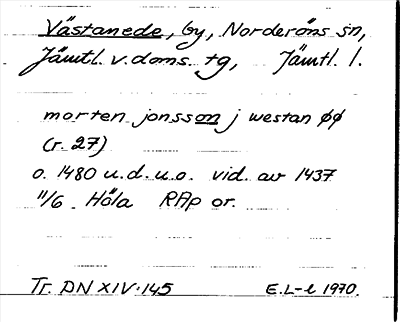 Västanede, by, Norderöns sn,
Jämtl. v. doms. tg, Jämtl. l.
morten jonsson j westan øø
(r. 27)
o. 1480 u.d.u.o. vid. av 1437
11/6 Höla RAp or.
Tr. DN XIV:145 E.L-l 1970.